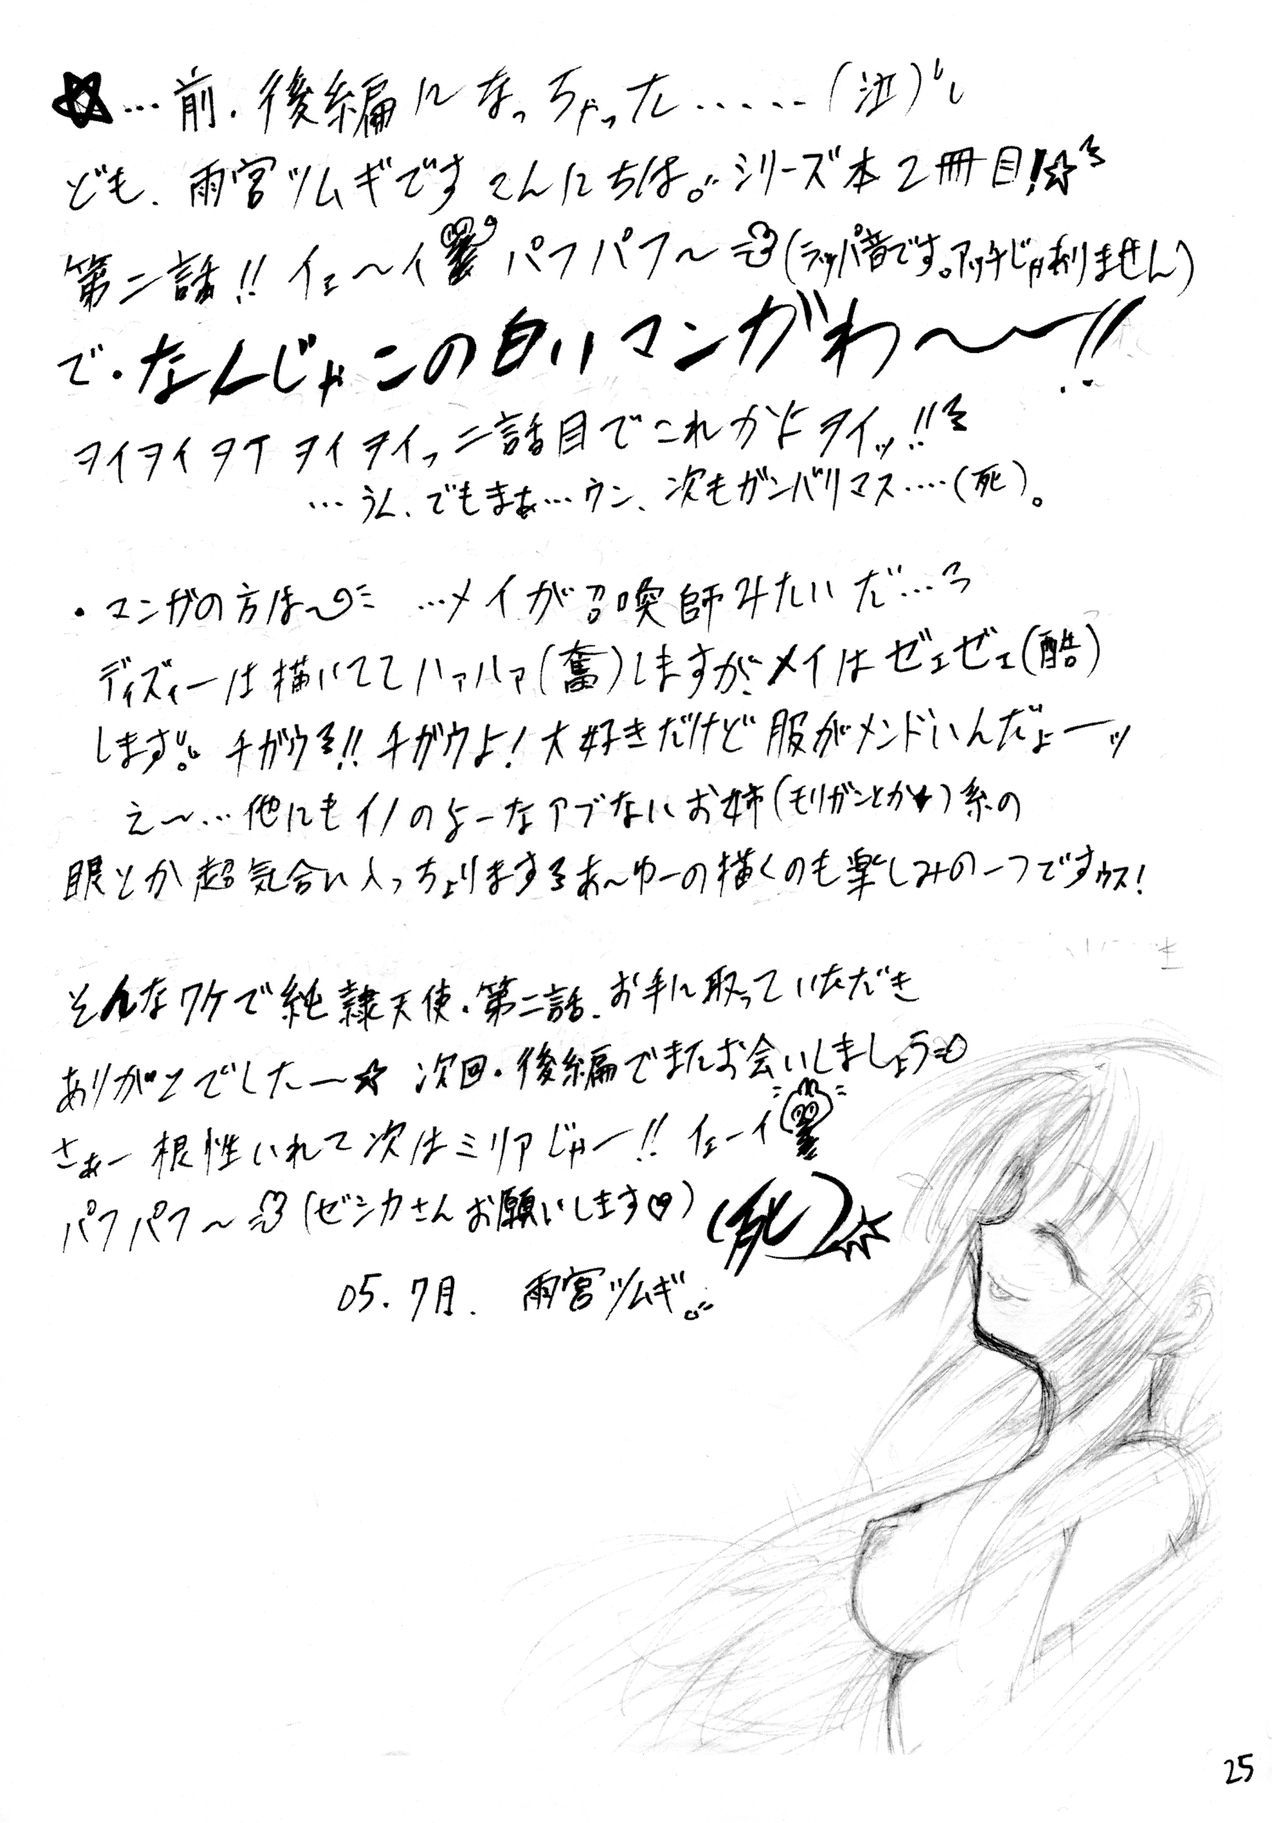 ☆…前・後編になっちゃった……(泣)
ども、雨宮ツムギですこんにちは。シリーズ本2冊目!☆
第二話!! イェ〜イ パフパフ〜(ラッパ音です。アッチじゃありません)
で・なんじゃこの白いマンガわ〜〜!!
ヲイヲイタイヲイヲイっ二話目でこれかよヲイッ!!
…うん、でもまぁ…ウン、次もガンバリマス…(死)。
・マンガの方は〜 …メイが召喚師みたいだ…
ディズィーは描いててハァハァ(奮)しますが、メイはゼェゼェ(酷)
します。チガウ!! チガウよ!大好きだけど服がメンドいんだよーッ
え〜…他にもイノのよーなアブないお姉(モリガンとか★)系の
眼とか超気合い入っちょりますあ〜ゆーの描くのも楽しみの一つですゥス!
そんなワケで純隷天使・第二話、お手に取っていただき
ありがとでしたー☆ 次回・後編でまたお会いしましょう
さぁー根性いれて次はミリアじゃー!! イェーイ
パフパフ〜(ゼシカさんお願いします♡)(死)
05.7月. 雨宮ツムギ。
25